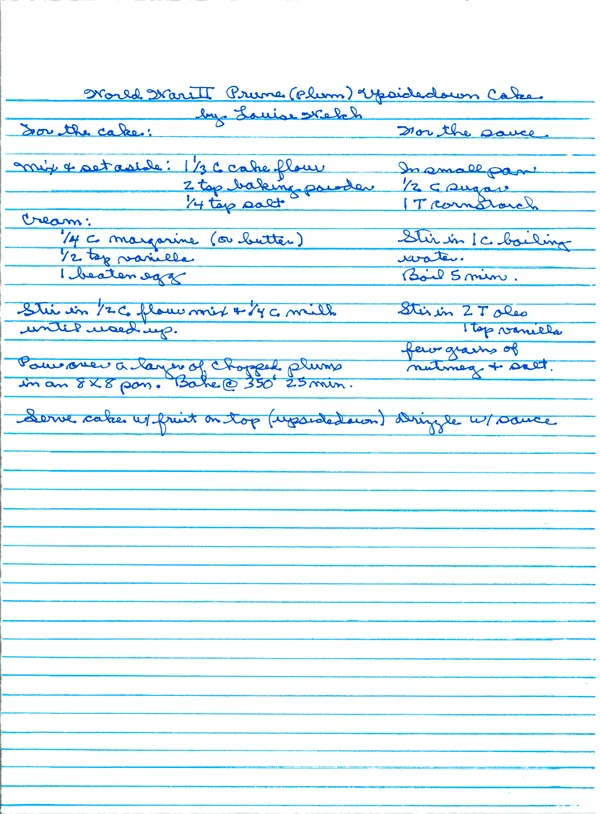 World War II Prune (plum) Upsidedown Cake
by Louise Welch
For the cake:
Mix & set aside: 1 1/3 C cake flour
2 tsp baking powder
1/4 tsp salt
Cream:
1/4 C margarine (or butter)
1/2 tsp vanilla
1 beaten egg
Stir in 1/2 C flour mix & 1/4 C milk
until used up.
Pour over a layer of chopped plums
in an 8X8 pan. Bake @ 350° 25 min.
For the sauce
In small pan
1/2 C sugar
1 T cornstarch
Stir in 1 C boiling
water.
Boil 5 min.
Stir in 2 T oleo
1 tsp vanilla
few grains of
nutmeg & salt.
Serve cake w/ fruit on top (upsidedown) Drizzle w/ sauce